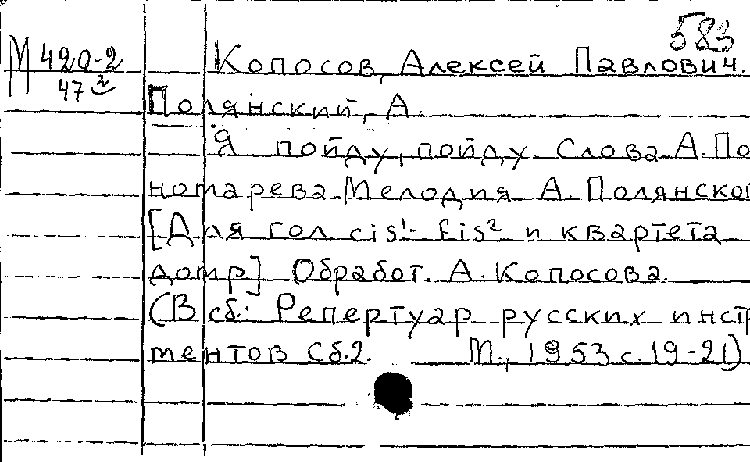 583
М 420-2 Копосов, Алексей Павлович.
47
Полянский, А.
Я пойду, пойду. Слова А. По
номарева. Мелодия А. Полянско
[Для гол. cis¹- fis² и квартета
домр] Обработ. А. Копосова.
(В сб.: Репертуар русских инстр
ментов Сб.2. М., 1953 с. 19-21)